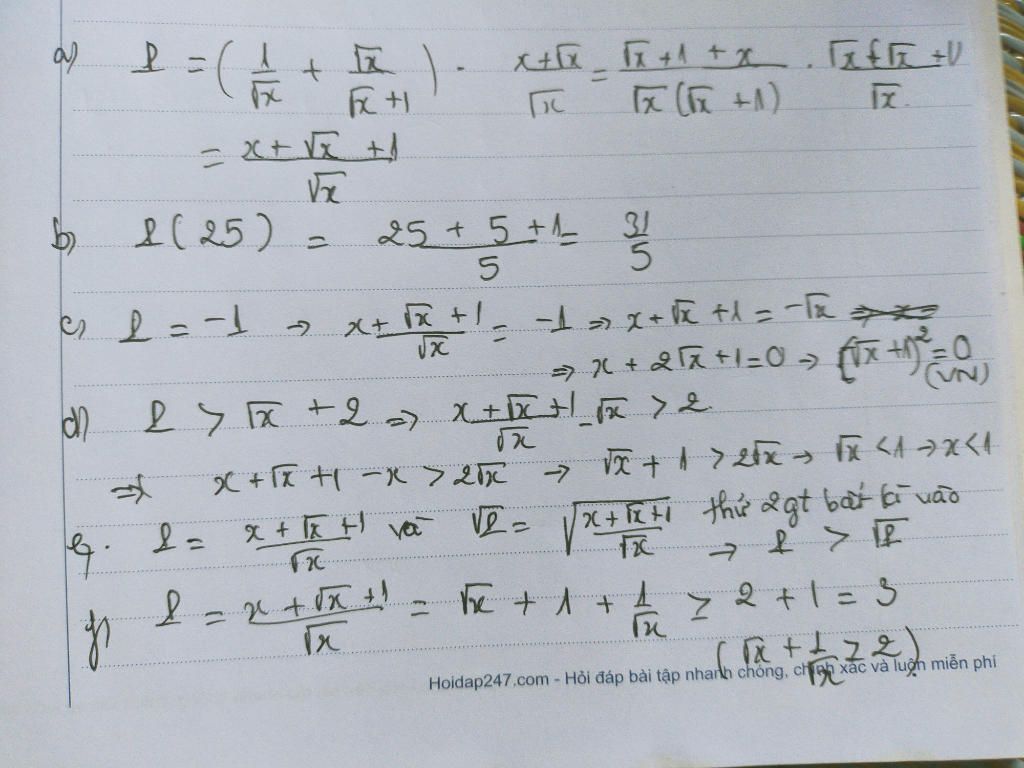 a) P = (1/√x + √x/(√x + 1)) · (x+√x)/√x = (√x + 1 + x)/(√x(√x + 1)) · √x(√x + 1)/√x.
= (x + √x + 1)/√x
b) P(25) = (25 + 5 + 1)/5 = 31/5
c) P = -1 → (x + √x + 1)/√x = -1 ⇒ x + √x + 1 = -√x
⇒ x + 2√x + 1 = 0 → (√x + 1)² = 0
(VN)
d) P > √x + 2 ⇒ (x + √x + 1)/√x - √x > 2
⇒ x + √x + 1 - x > 2√x → √x + 1 > 2√x → √x < 1 → x < 1
e) P = (x + √x + 1)/√x và √P = √((x + √x + 1)/√x) thử 2gt bất kì vào
→ P > √P
f) P = (x + √x + 1)/√x = √x + 1 + 1/√x ≥ 2 + 1 = 3
(√x + 1/√x ≥ 2)
Hoidap247.com - Hỏi đáp bài tập nhanh chóng, chính xác và luôn miễn phí